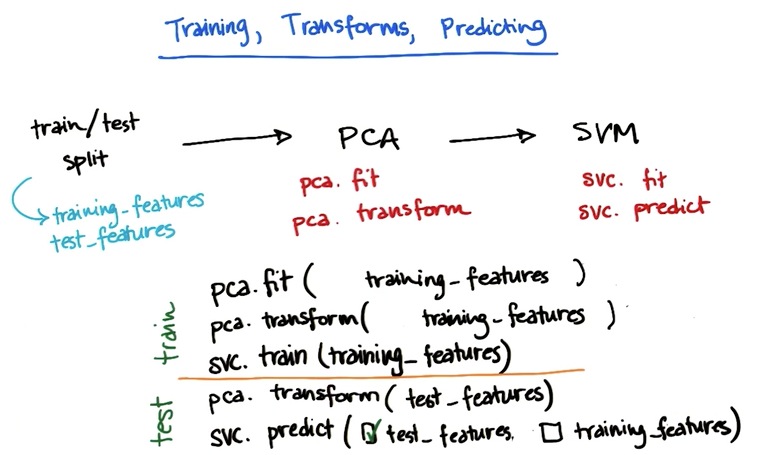 Training, Transforms, Predicting
train/test split → PCA → SVM
training_features
test_features
pca. fit
pca. transform
svc. fit
svc. predict
train
pca.fit ( training_features )
pca. transform( training_features )
svc. train (training_features)
test
pca. transform( test_features)
svc. predict ( ☑ test_features, ☐ training_features)